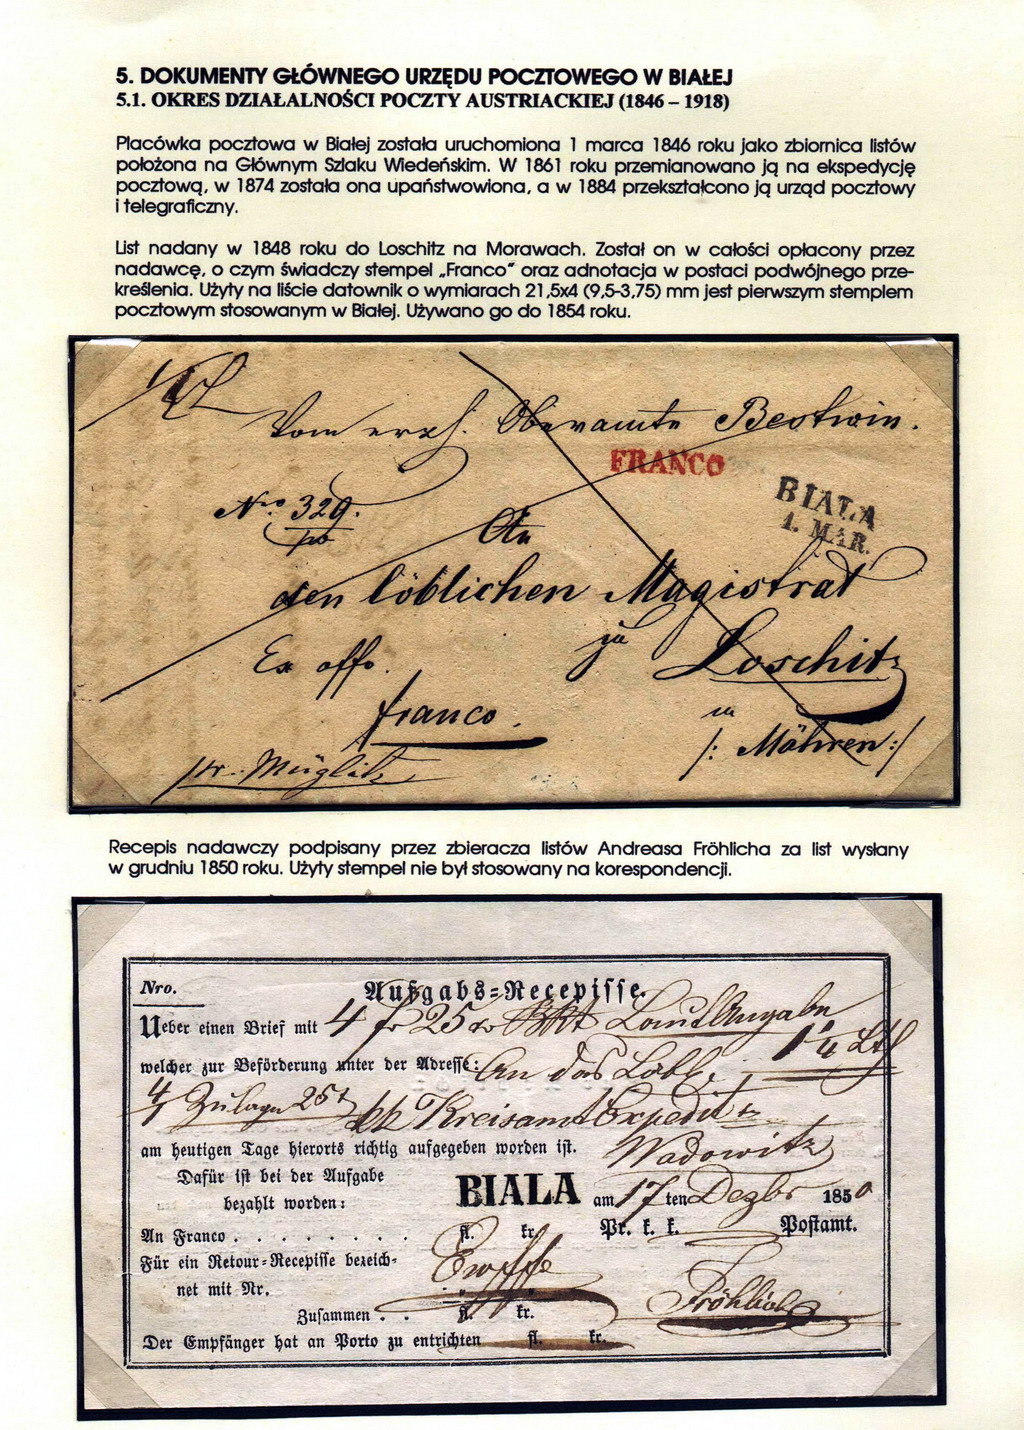 5. DOKUMENTY GŁÓWNEGO URZĘDU POCZTOWEGO W BIAŁEJ
5.1. OKRES DZIAŁALNOŚCI POCZTY AUSTRIACKIEJ (1846 – 1918)
Placówka pocztowa w Białej została uruchomiona 1 marca 1846 roku jako zbiornica listów
położona na Głównym Szlaku Wiedeńskim. W 1861 roku przemianowano ją na ekspedycję
pocztową, w 1874 została ona upaństwowiona, a w 1884 przekształcono ją urząd pocztowy
i telegraficzny.
List nadany w 1848 roku do Loschitz na Morawach. Został on w całości opłacony przez
nadawcę, o czym świadczy stempel „Franco" oraz adnotacja w postaci podwójnego prze-
kreślenia. Użyty na liście datownik o wymiarach 21,5x4 (9,5-3,75) mm jest pierwszym stemplem
pocztowym stosowanym w Białej. Używano go do 1854 roku.
Vom erzh. Oberamte Bestwin.
FRANCO
BIALA
1. MAR.
Nro. 329.
An
den löblichen Magistrat
zu Loschitz
Ex offo.
franco.
in
/: Mähren :/
pr. Müglitz
Recepis nadawczy podpisany przez zbieracza listów Andreasa Fröhlicha za list wysłany
w grudniu 1850 roku. Użyty stempel nie był stosowany na korespondencji.
Nro.
Aufgabs-Recepisse.
Ueber einen Brief mit 4 f 25 x Laut Angabe
welcher zur Beförderung unter der Adresse: An das Löbl.
Zulage 25 x kk Kreisamts Expedit
am heutigen Tage hierorts richtig aufgegeben worden ist. Wadowitz
Dafür ist bei der Aufgabe
bezahlt worden:
BIALA am 17 ten Dezbr 1850
An Franco . . . . . . . . fl. kr. Pr. k. k. Postamt.
Für ein Retour-Recepisse bezeich-
net mit Nr.
Fröhlich
Zusammen . . fl. kr.
Der Empfänger hat an Porto zu entrichten fl. kr.